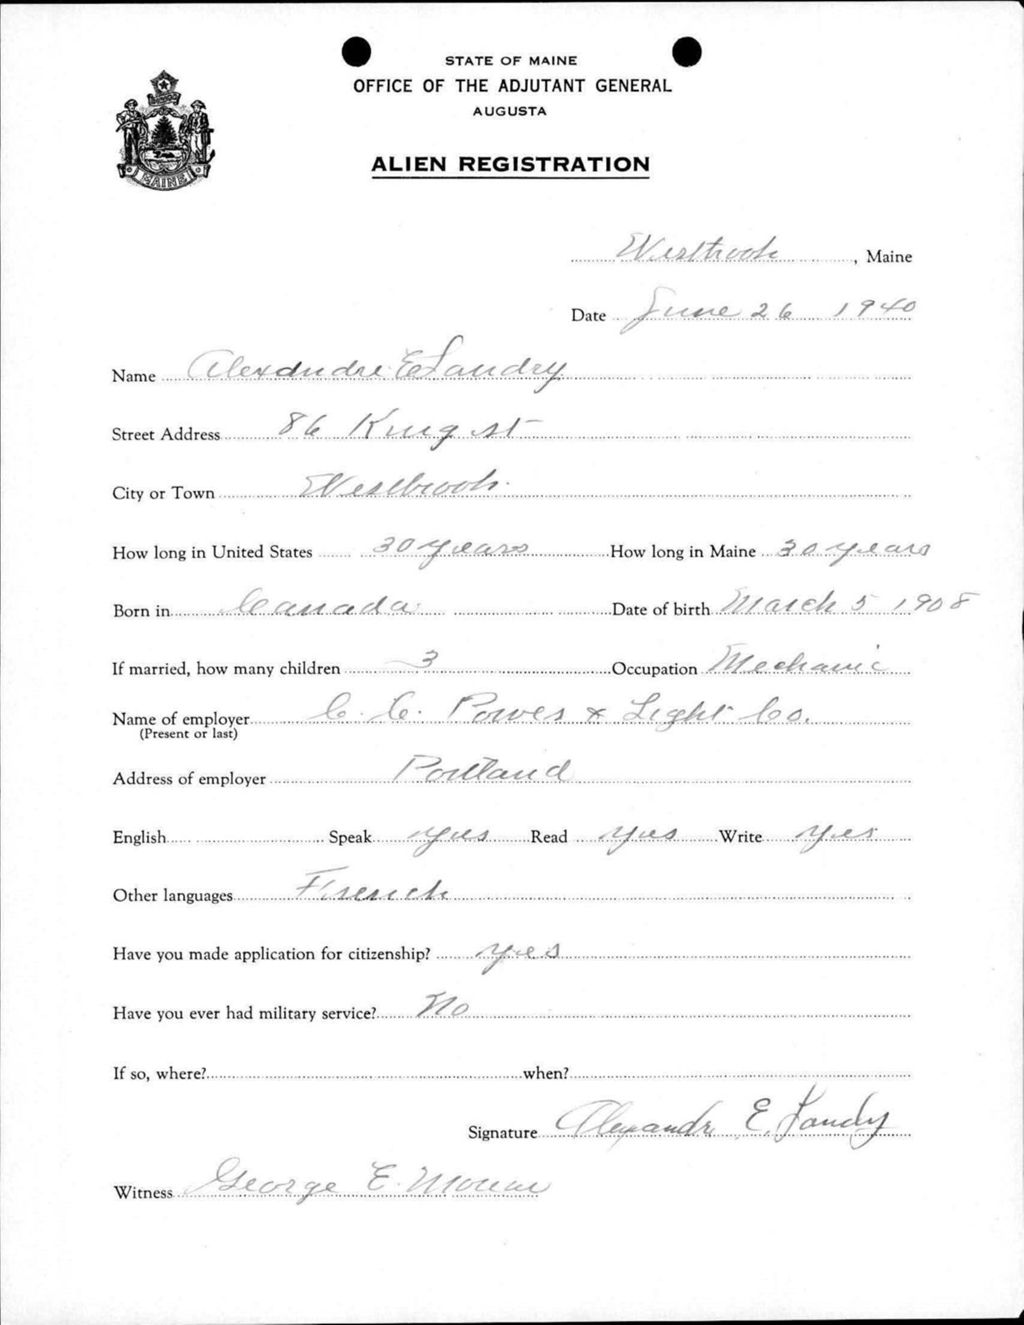 STATE OF MAINE
OFFICE OF THE ADJUTANT GENERAL
AUGUSTA
ALIEN REGISTRATION
MAINE
Westbrook, Maine
Date June 26 1940
Name Alexandre E Landry
Street Address 86 King st
City or Town Westbrook.
How long in United States 30 years How long in Maine 30 years
Born in Canada Date of birth March 5 1908
If married, how many children 3 Occupation Mechanic
Name of employer C. C. Power & Light Co.
(Present or last)
Address of employer Portland
English Speak yes Read yes Write yes
Other languages French
Have you made application for citizenship? yes
Have you ever had military service? No
If so, where? when?
Signature Alexandre E. Landry
Witness George E.